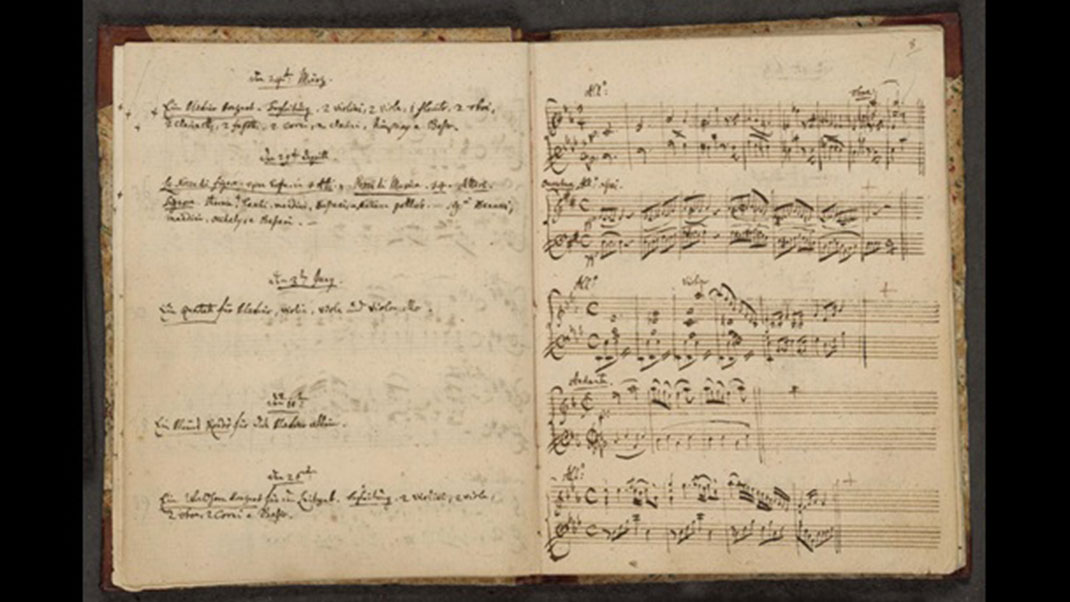 Den 24ten März.
Ein klavier konzert. Begleitung. 2 violini, 2 viole, 1 flauto, 2 oboi,
2 clarinetti, 2 fagotti, 2 corni, 2 clarini, timpany e Baßo.
Den 29ten Aprill
Le Nozze di Figaro. opera buffa. in 4 Atti. Pezzi di Musica. 34. Attori.
Signore. Storace, Laschi, mandini, Bußani, e Nannina gottlieb. — Sigri Benucci,
mandini, occhely, e Bußani. —
Den 3ten Juny.
Ein quartett für klavier, violin, viola und violoncello.
Ein kleines Rondò für das klavier allein.
Den 26ten
Ein Waldhorn konzert für den leitgeb. begleitung. 2 violini, 2 viole
2 oboe, 2 corni e Baßo.
8
Allo:
oboe
allo: aßai.
Allo
violin
Andante.
Allo: